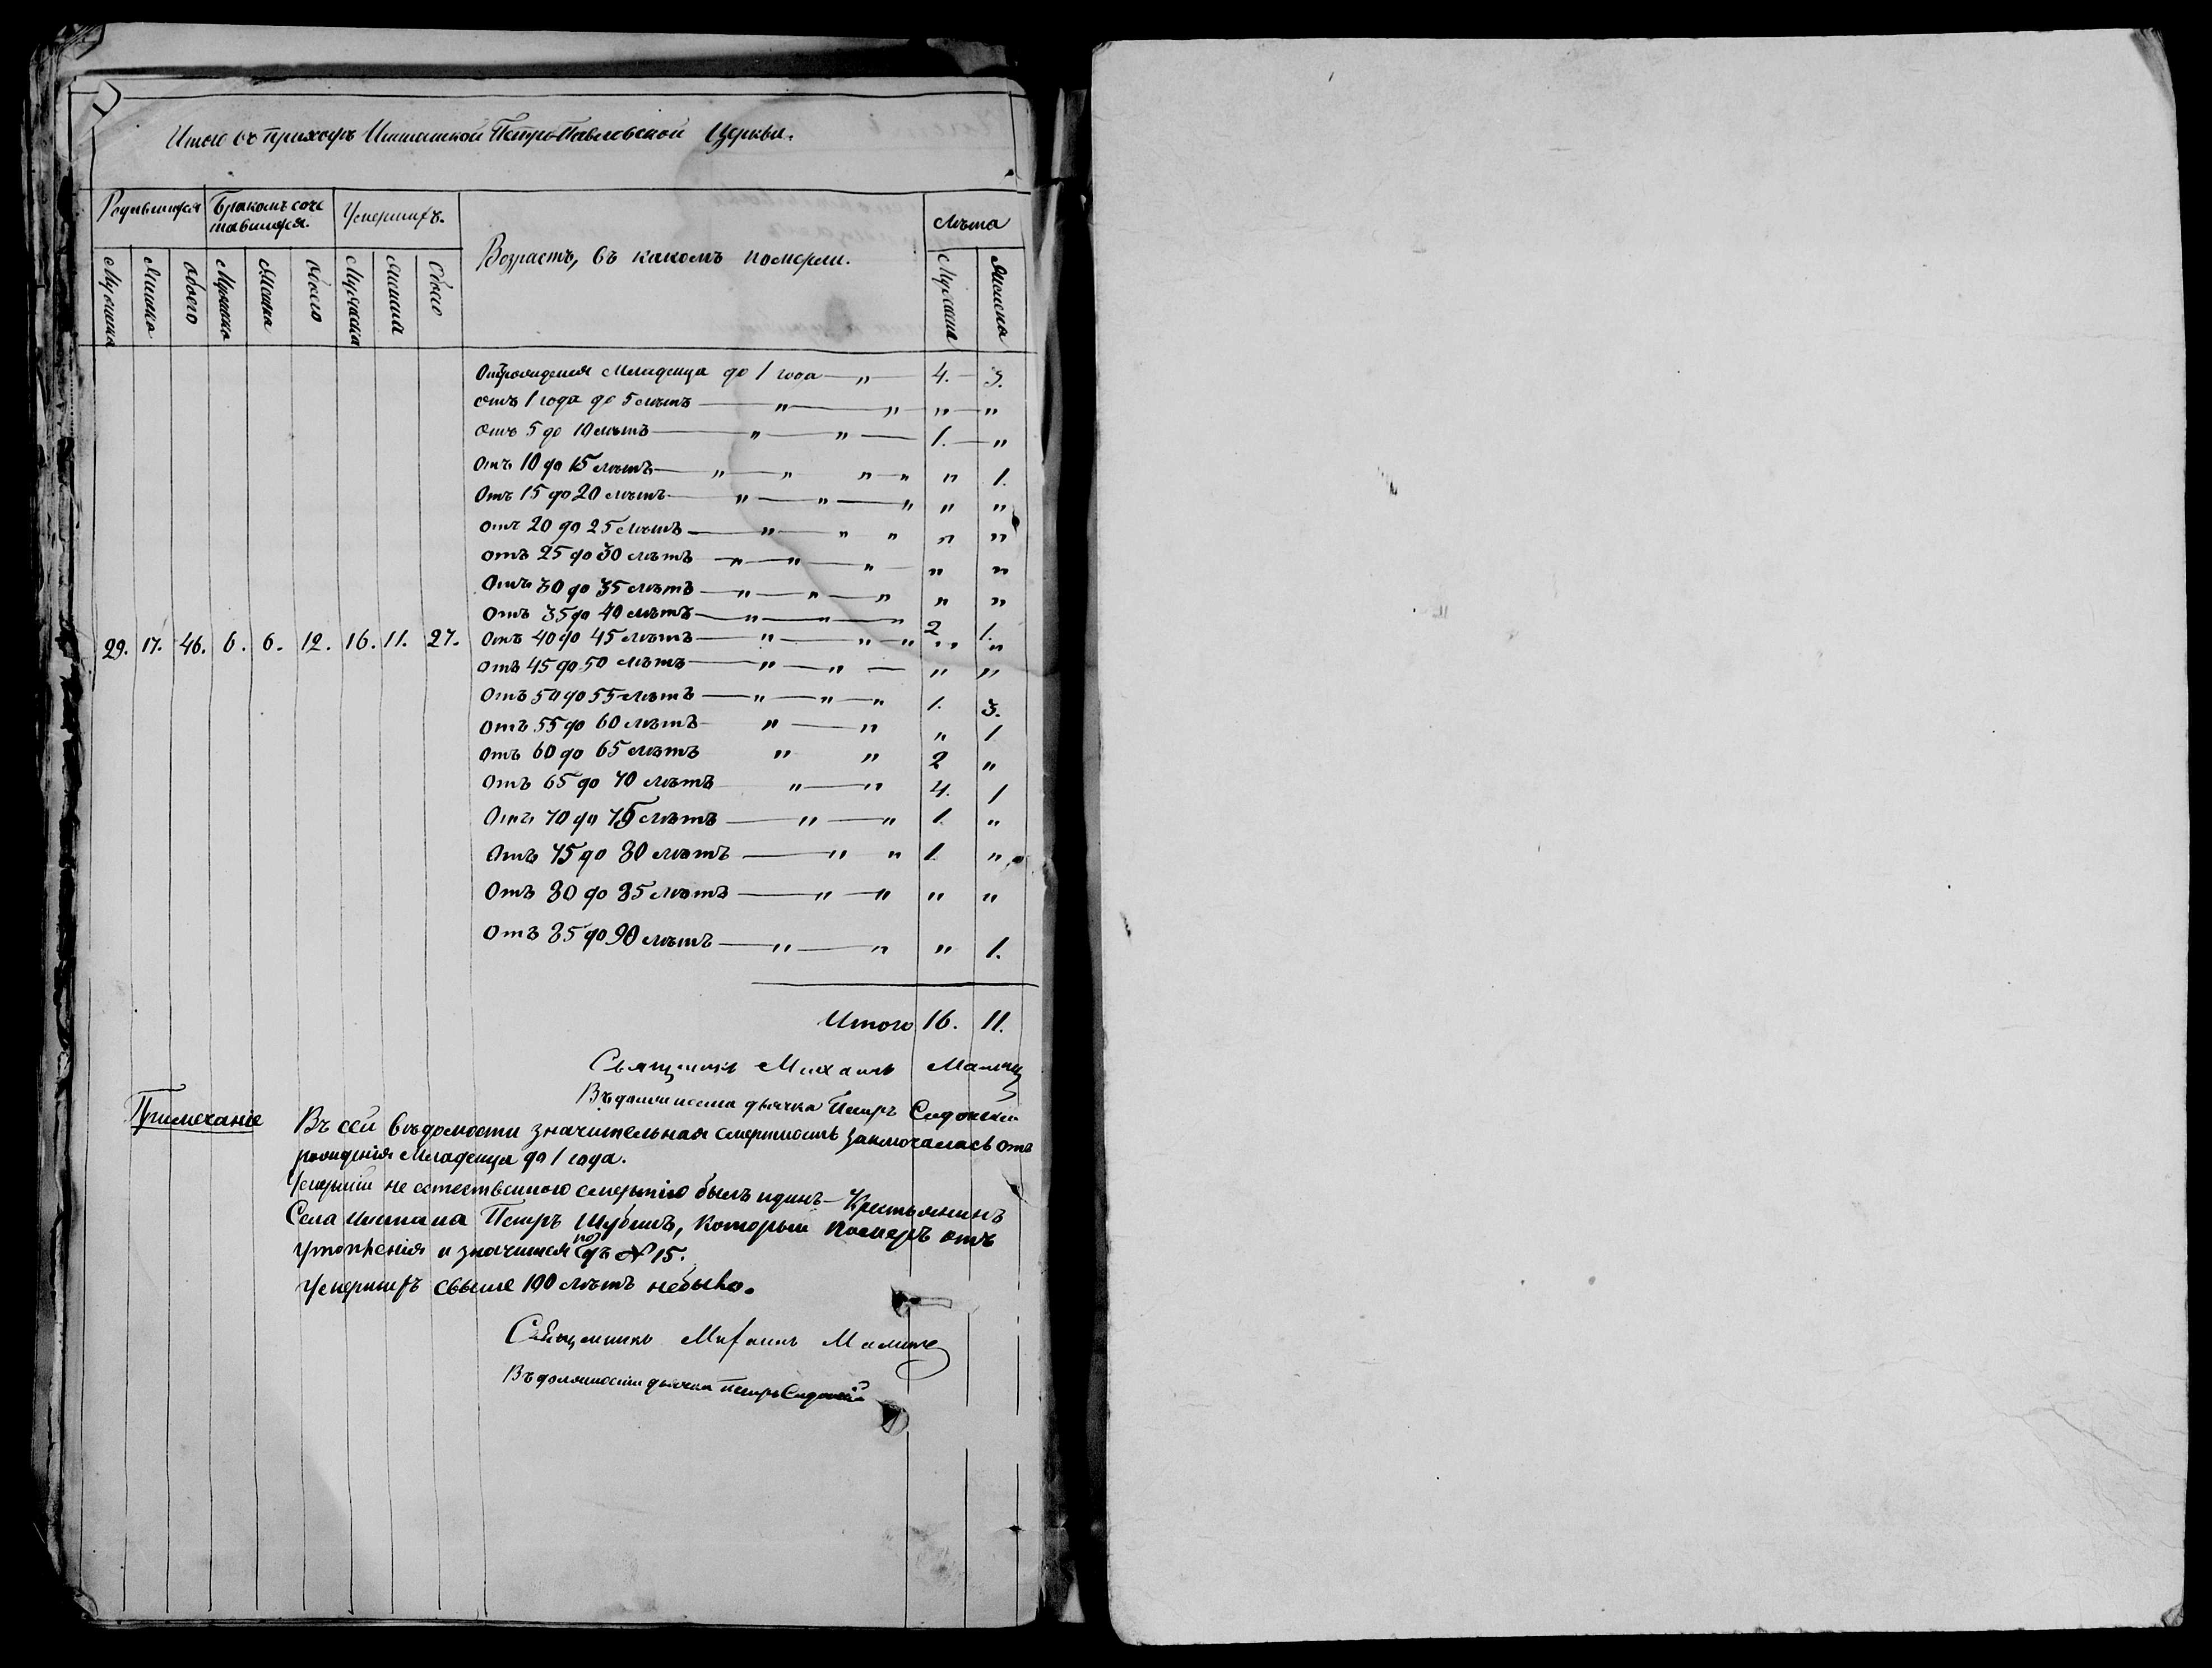 Итого въ приходѣ Иштанской Петро-Павловской Церкви.
Родившихся Бракомъ соче Умершихъ. Возрастъ, въ какомъ померли. Лѣта
тавшихся.
Мужеска Женска Обоего Мужеска Женска Обоего Мужеска Женска Обоего Мужеска Женска
Отъ рожденія Младенца до 1 года — „ — 4. — 3.
отъ 1 года до 5 лѣтъ — „ — „ — „ — „
отъ 5 до 10 лѣтъ — „ — „ — 1. — „
Отъ 10 до 15 лѣтъ — „ — „ „ — „ „ 1.
Отъ 15 до 20 лѣтъ — „ — „ — „ „ „
отъ 20 до 25 лѣтъ — „ — „ „ „ „
отъ 25 до 30 лѣтъ — „ — „ — „ — „ „
Отъ 30 до 35 лѣтъ — „ — „ — „ „ „
Отъ 35 до 40 лѣтъ — „ — „ — „ 2 1.
29. 17. 46. 6. 6. 12. 16. 11. 27. Отъ 40 до 45 лѣтъ — „ — „ — „ „ „
Отъ 45 до 50 лѣтъ — „ — „ — „ „
Отъ 50 до 55 лѣтъ — „ — „ — „ 1. 3.
Отъ 55 до 60 лѣтъ — „ — „ „ 1
Отъ 60 до 65 лѣтъ „ „ 2 „
Отъ 65 до 70 лѣтъ „ — „ 4. 1
Отъ 70 до 75 лѣтъ — „ — „ 1. „
Отъ 75 до 80 лѣтъ — „ „ 1. „
Отъ 80 до 85 лѣтъ — „ — „ „ „
Отъ 85 до 90 лѣтъ — „ — „ „ 1.
Итого 16. 11.
Священникъ Михаилъ
Въ должности дьячка Петръ Сидонскій
Примечаніе Въ сей вѣдомости значительная смертность заключалась отъ
рожденія Младенца до 1 года.
Умершій не естественною смертію былъ одинъ — Крестьянинъ
Села Иштана Петръ Шубинъ, который померъ отъ
утопленія и значится подъ № 15.
Умершихъ свыше 100 лѣтъ небыло.
Священникъ Михаилъ
Въ должности дьячка Петръ Сидонскій